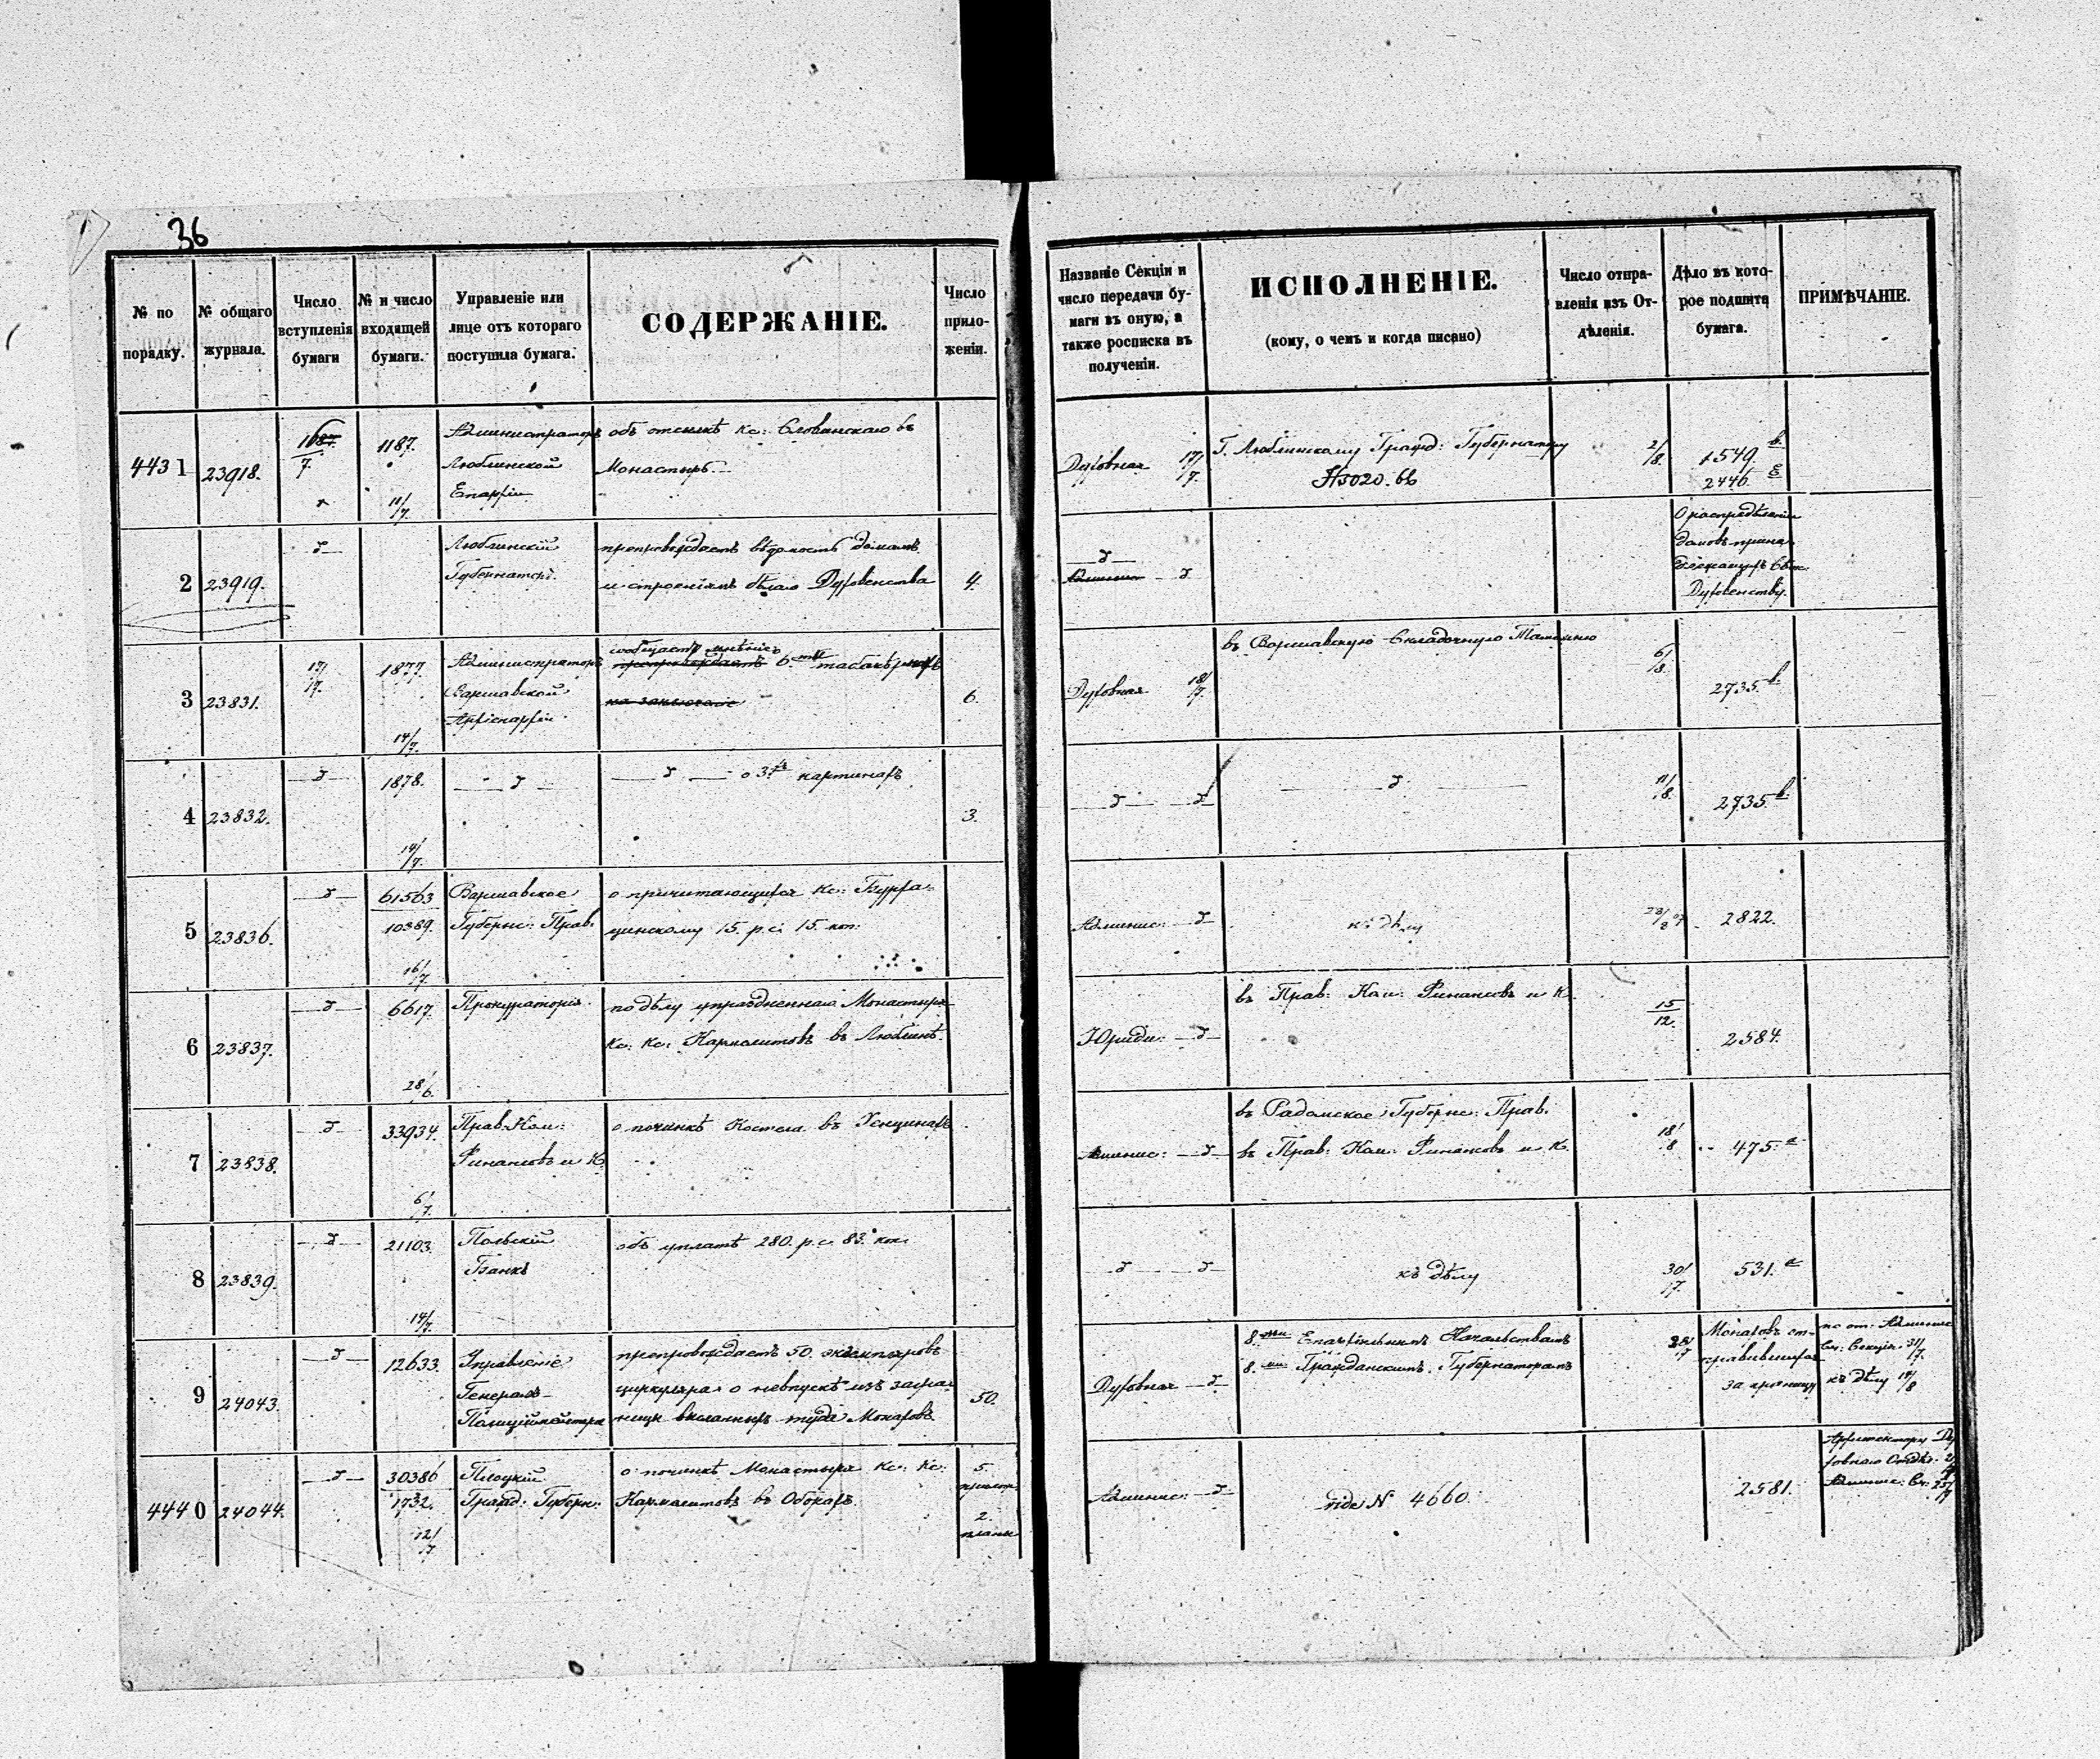 36
№ по порядку.
№ общаго журнала.
Число вступленія бумаги
№ и число входящей бумаги.
Управленіе или лице отъ котораго поступила бумага.
СОДЕРЖАНІЕ.
Число приложеній.
Названіе Секціи и число передачи бумаги въ оную, а также росписка въ полученіи.
ИСПОЛНЕНІЕ.
(кому, о чемъ и когда писано)
Число отправленія изъ Отдѣленія.
Дѣло въ которое подшита бумага.
ПРИМѢЧАНІЕ.
4431 23918. 1187. 11/7.
Администраторъ
Люблинской
Епархіи
объ отсылкѣ Кс: Словинскаго въ
Монастырь.
Духовная 17/7.
Г. Люблинскому Гражд: Губернатору
2/8. 1549 в.
2446.
2 23919.
Люблинскій
Губернаторъ.
препровождаетъ вѣдомость домамъ
и строеніямъ бѣлаго Духовенства
4.
О распредѣленіи
домовъ прина-
Духовенству.
3 23831. 17/7. 1877. 14/7.
Администраторъ
Варшавской
Архіепархіи.
сообщаетъ мнѣніе
препровождаетъ 6
на заключеніе
6.
Духовная 18/7.
въ Варшавскую Складочную Таможню
6/8. 2735. в.
4 23832. 1878. 14/7.
о 3хъ картинахъ
3.
11/8. 2735. в.
5 23836. 61563
10389. 16/7.
Варшавское
Губернс: Прав:
о причитающихся Кс: Бурха-
цинскому 15. р.с. 15. коп:
Админис:
къ дѣлу
2822.
6 23837. 6617. 28/6.
Прокураторія.
по дѣлу упраздненнаго Монастыря
Кс: Кс: Кармелитовъ въ Люблинѣ.
Юриди:
въ Прав: Ком: Финансовъ и К.
15/12. 2584.
7 23838. 33934. 6/7.
Прав: Ком:
Финансовъ и К.
о починкѣ Костела въ Хенцинахъ
Админис:
въ Радомское Губернс: Прав.
въ Прав: Ком: Финансовъ и К.
18/8 475. а
8 23839. 21103. 14/7.
Польскій
Банкъ
объ уплатѣ 280. р.с. 83. коп.
къ дѣлу
30/7. 531. а
9 24043. 12633.
Управленіе
Генералъ-
Полиціймейстера
препровождаетъ 50. экземпляровъ
циркуляра о невпускѣ изъ загра-
ницы высланныхъ туда Монаховъ
50.
Духовная
8.ми Епархіальнымъ Начальствамъ
8.ми Гражданскимъ Губернаторамъ
Монаховъ от-
правившихся
за границу
къ дѣлу
4440 24044. 30386
1732. 12/7.
Плоцкій
Гражд: Губерн:
о починкѣ Монастыря Кс: Кс:
Кармелитовъ въ Оборахъ.
5.
2.
планы
Админис:
vide N 4660.
2581.